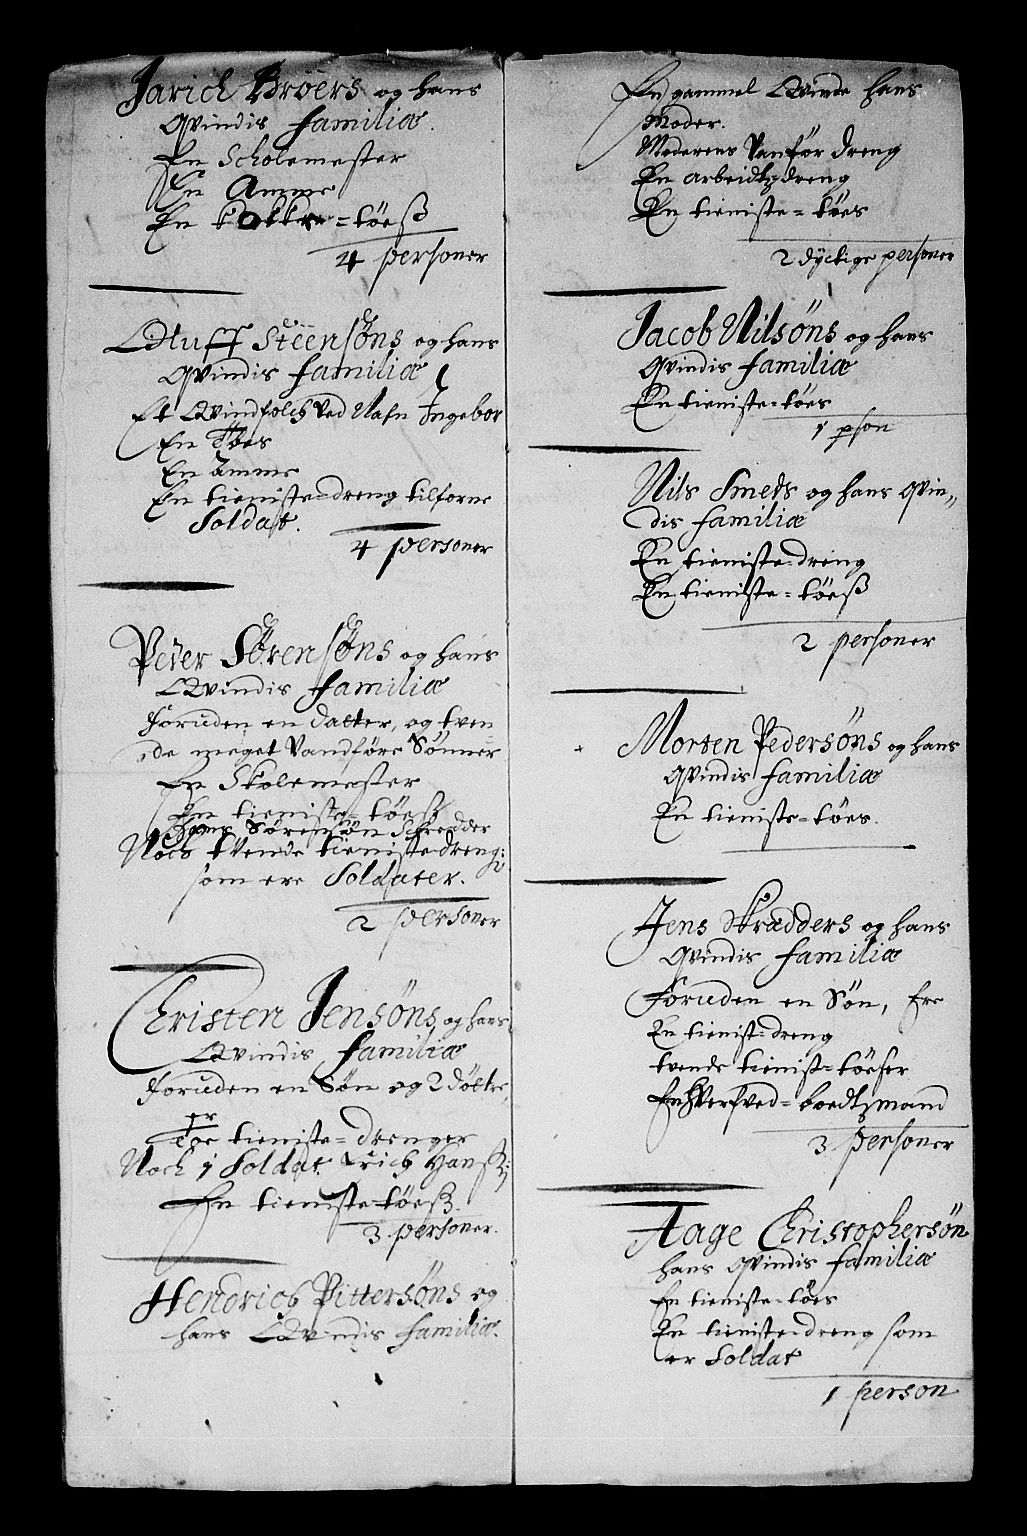 Jarich Bröers og hans
Qvindis familiæ.
En Scholemester
En Amme
En Kokke=töeß
4 personer
Oluff Steensöns og hans
Qvindis familiæ
Et Qvindfolch ved Nafn Ingebor
En Töes
En Amme
En tieniste=dreng tilforne
Soldat.
4 personer
Peder Sörensöns og hans
Qvindis familiæ
Foruden en datter, og tven
de meget Vandföre Sönner
En Skolemester
En tieniste=töeß
Hans Sörensön Schredder
Noch tvende tienistedreng:
som ere Soldater.
2 personer
Christen Jensöns og hans
Qvindis familiæ
Foruden en Sön og 2 dötte,
er
Toe tieniste=drenger
Noch 1 Soldat Erich Hanß:
En tieniste töeß.
3 personer.
Hendrich Pittersöns og
hans Qvindis familiæ.
En gammel Qvinde hans
Moder.
Moderens Vanför dreng
En arbeidtzdreng
En tieniste=töes
2 dyctige personer
Jacob Nilsöns og hans
Qvindis familiæ
En tieniste=töes
1 pson
Nils Smeds og hans Qvin,,
dis familiæ
En tieniste=dreng
En tieniste=töeß
2 personer
Morten Pedersöns og hans
Qvindis familiæ
En tieniste=töes.
Jens Skrædders og hans
Qvindis familiæ
Foruden en Sön, Ere
En tienist=dreng
tvende tienist=töeser
En Hverfved=boedtzmand
3 personer
Aage Christophersön
hans Qvindis familiæ
En tieniste=töes
En tieniste dreng som
er Soldat
1 person